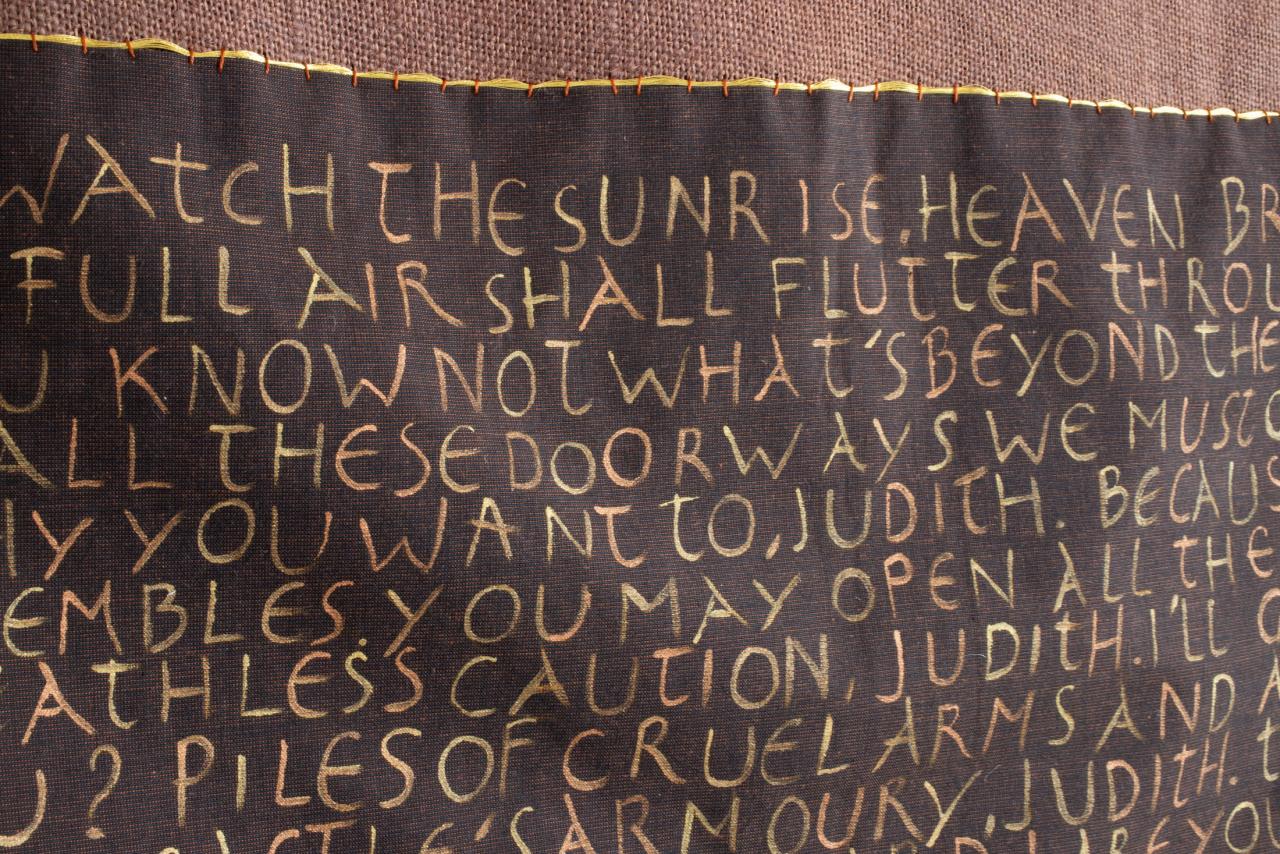 WATCH THE SUNRISE, HEAVEN
FULL AIR SHALL FLUTTER
KNOW NOT WHAT'S BEYOND THE
ALL THESE DOORWAYS WE MUST
YOU WANT TO, JUDITH. BECAUS
EMBLES. YOU MAY OPEN ALL THE
ATHLESS CAUTION, JUDITH. I'LL
? PILES OF CRUEL ARMS AND
ARMOURY, JUDITH.